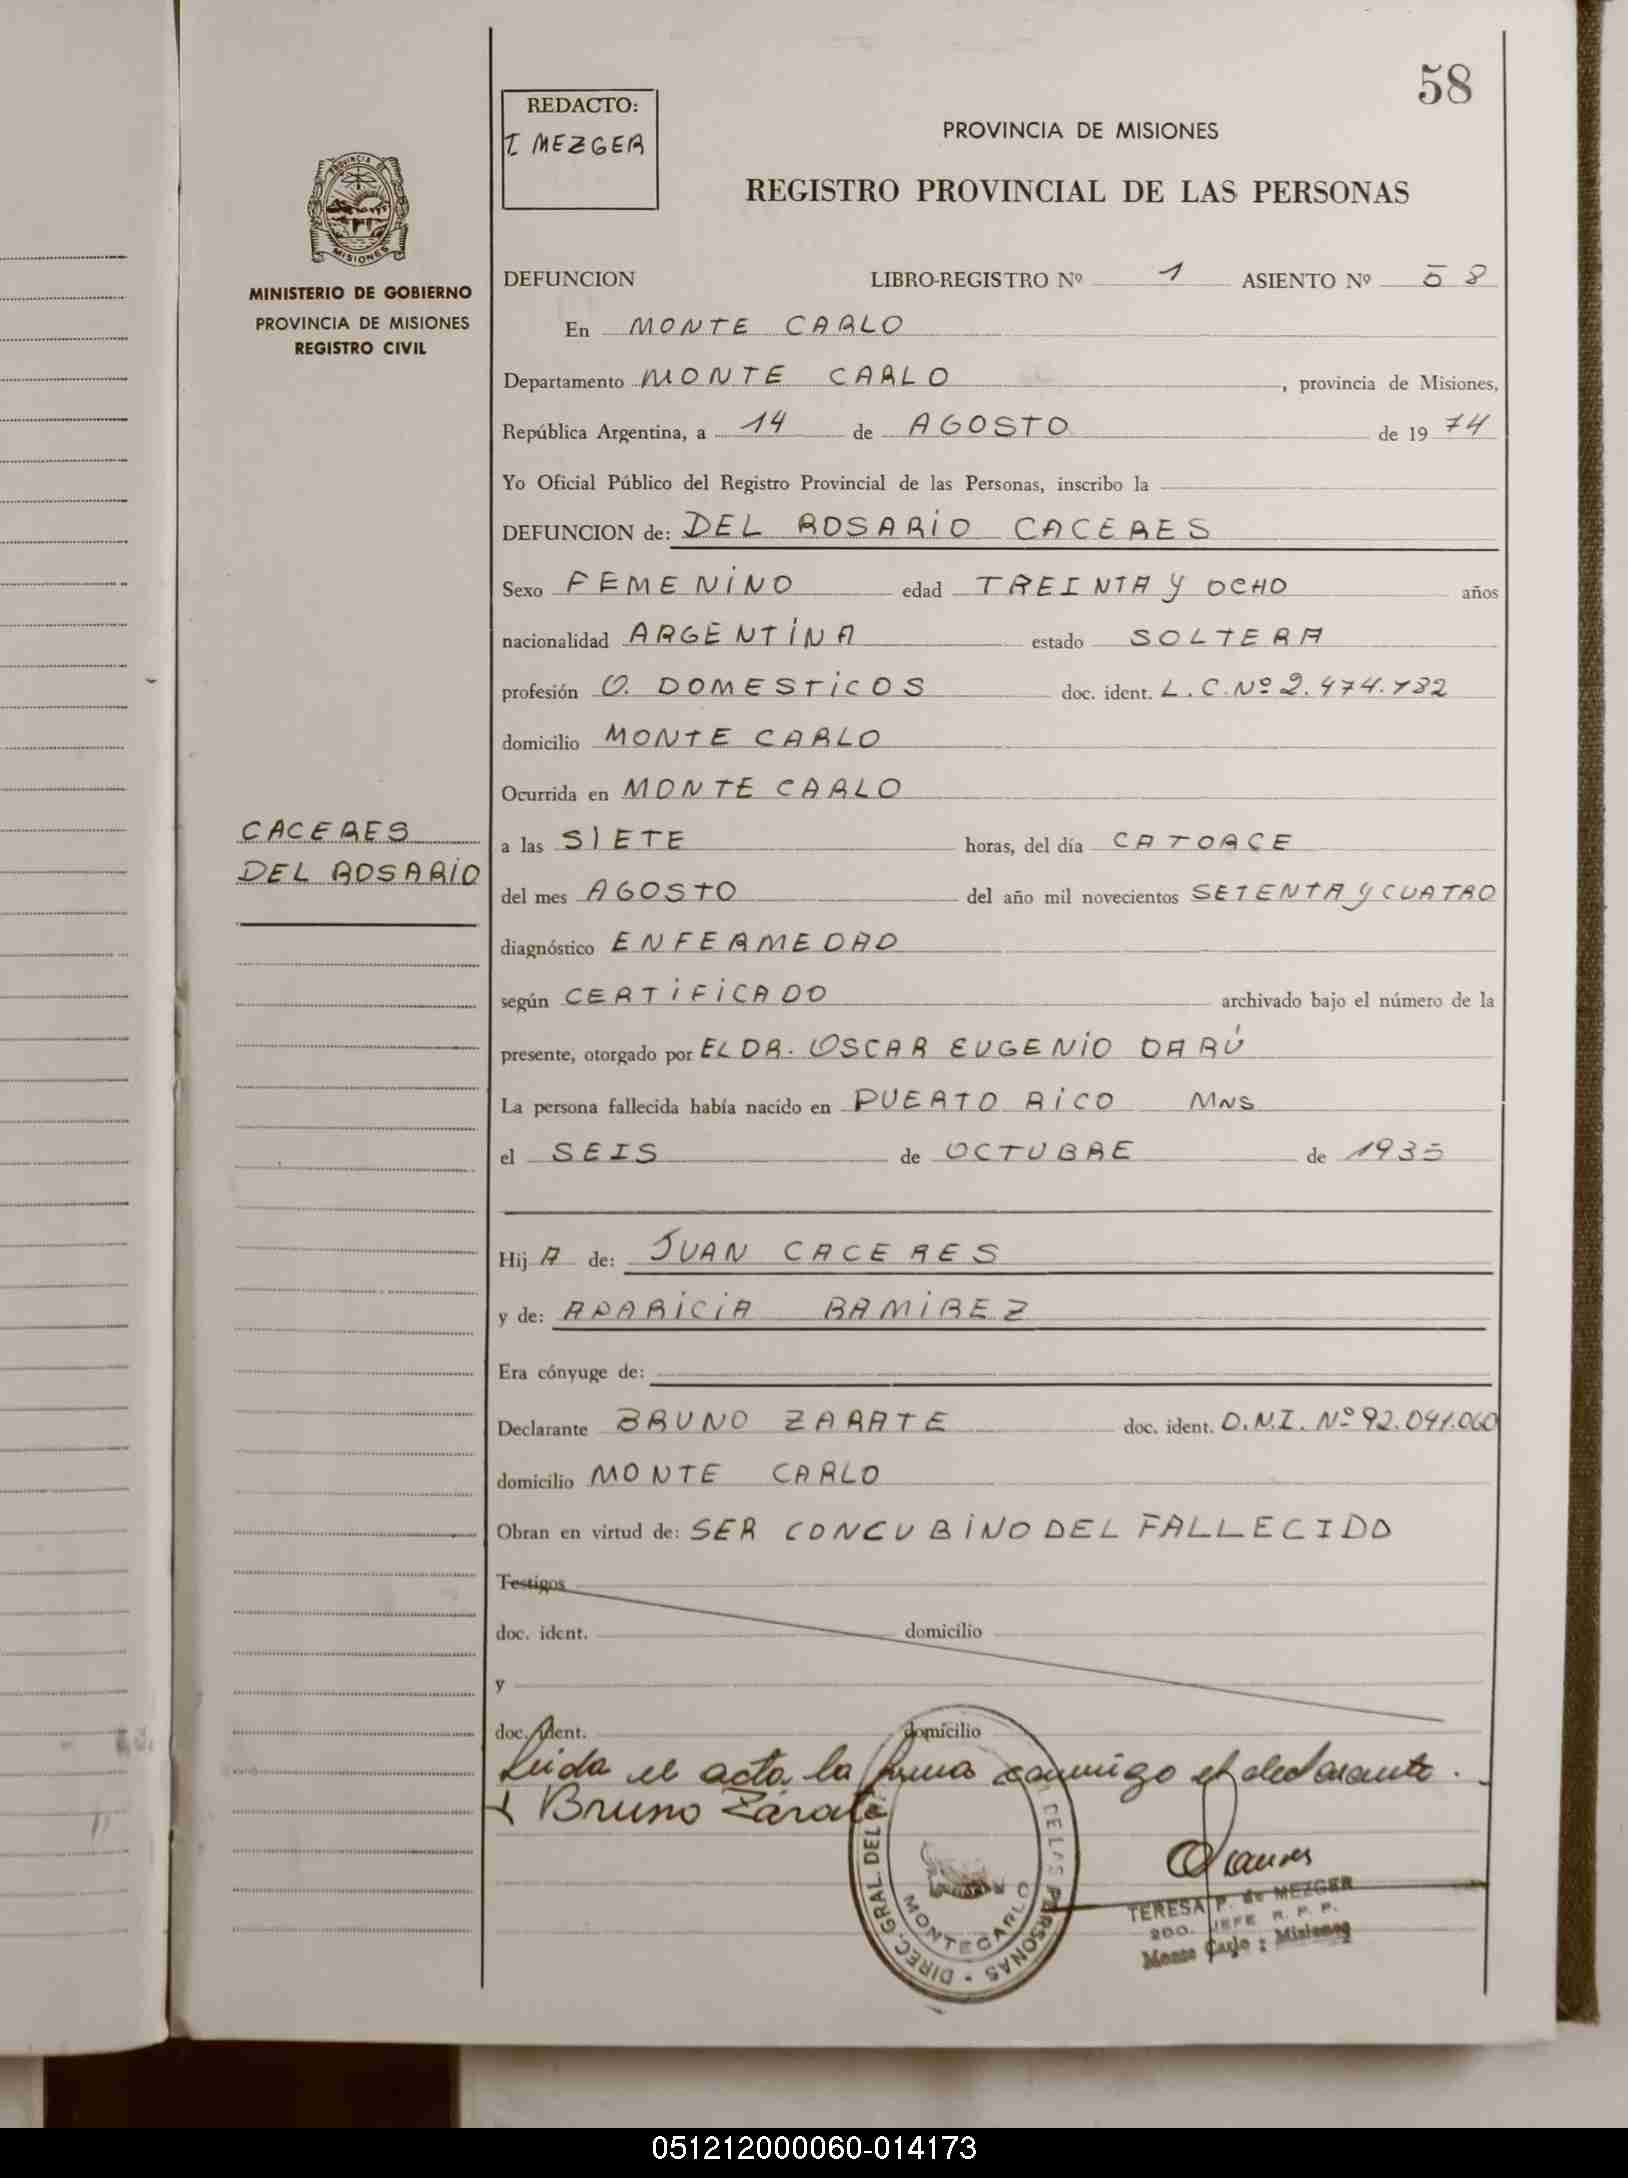 58
REDACTO:
T MEZGER
PROVINCIA DE MISIONES
REGISTRO PROVINCIAL DE LAS PERSONAS
PROVINCIA DE
MISIONES
MINISTERIO DE GOBIERNO
PROVINCIA DE MISIONES
REGISTRO CIVIL
DEFUNCION LIBRO-REGISTRO Nº 1 ASIENTO Nº 58
En MONTE CARLO
Departamento MONTE CARLO, provincia de Misiones,
República Argentina, a 14 de AGOSTO de 1974
Yo Oficial Público del Registro Provincial de las Personas, inscribo la
DEFUNCION de: DEL ROSARIO CACERES
Sexo FEMENINO edad TREINTA Y OCHO años
nacionalidad ARGENTINA estado SOLTERA
profesión Q. DOMESTICOS doc. ident. L.C. Nº 2.474.732
domicilio MONTE CARLO
Ocurrida en MONTE CARLO
CACERES
DEL ROSARIO
a las SIETE horas, del día CATORCE
del mes AGOSTO del año mil novecientos SETENTA Y CUATRO
diagnóstico ENFERMEDAD
según CERTIFICADO archivado bajo el número de la
presente, otorgado por EL DR. OSCAR EUGENIO DARÚ
La persona fallecida había nacido en PUERTO RICO MNS
el SEIS de OCTUBRE de 1935
Hij A de: JUAN CACERES
y de: APARICIA RAMIREZ
Era cónyuge de:
Declarante BRUNO ZARATE doc. ident. D.N.I. Nº 92.041.060
domicilio MONTE CARLO
Obran en virtud de: SER CONCUBINO DEL FALLECIDO
Testigos
doc. ident. domicilio
y
doc. ident. domicilio
Leida el acta la firma conmigo el declarante.
Bruno Zárate
DIREC. GRAL. DEL DE LAS PERSONAS
MONTECARLO
TERESA P. de MEZGER
2DO. JEFE R. P. P.
Monte Carlo : Misiones
051212000060-014173